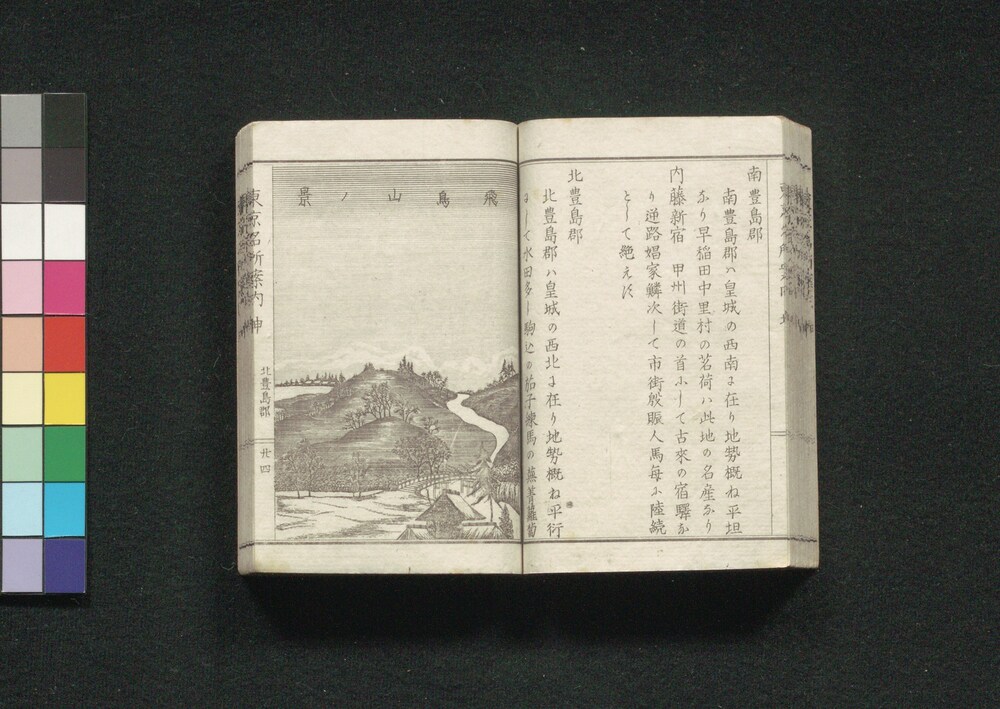 南豊島郡
南豊島郡ハ皇城の西南に在り地勢概ね平坦
なり早稲田中里村の茗荷ハ此地の名産なり
内藤新宿　甲州街道の首にして古來の宿驛な
り逆路娼家鱗次して市街殷賑人馬毎に陸続
として絶えず
北豊島郡
北豊島郡ハ皇城の西北に在り地勢概ね平衍
にして水田多し駒込の茄子練馬の蕪菁蘿蔔
飛鳥山ノ景
東京名所案内
北豊島郡
廿四